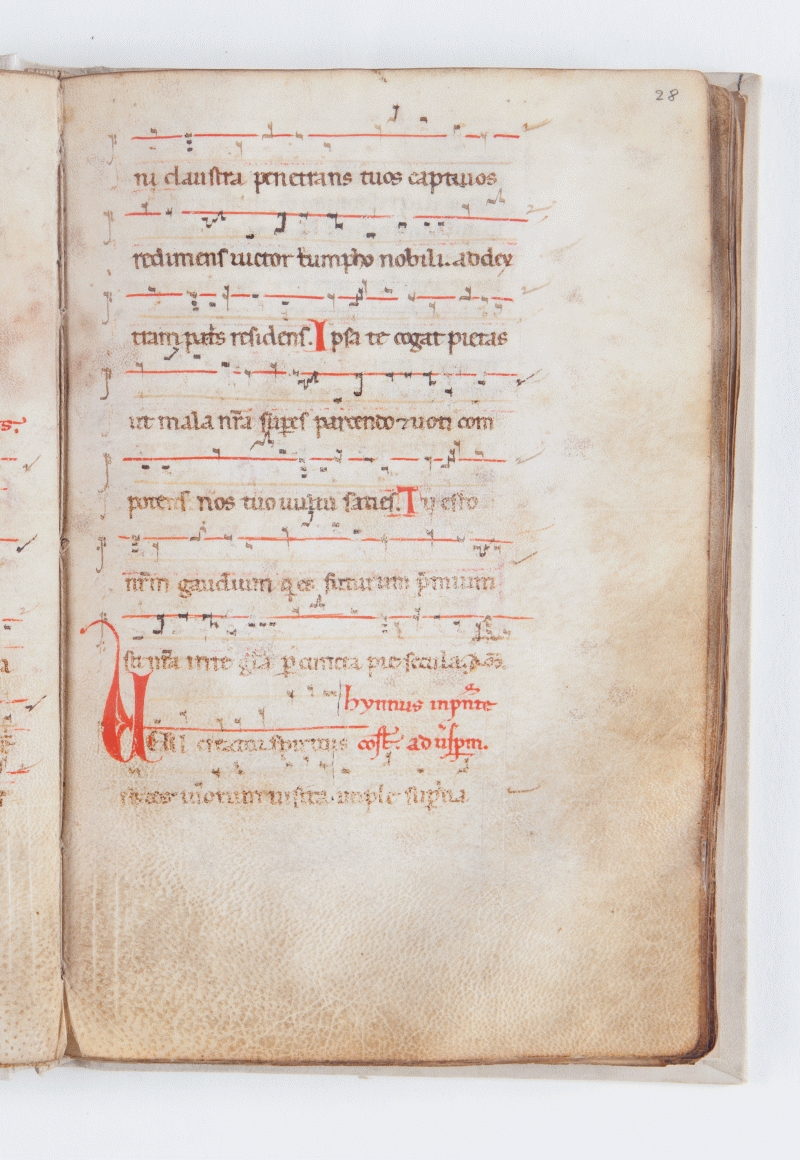 28
ni claustra penetrans tuos captiuos
redimens uictor triumpho nobili. ad dex
tram pat̄s residens. Ipsa te cogat pietas
ut mala nr̄a sup̄es parcendo ⁊ uoti com
potens nos tuo uultu saties. Tu esto
nr̄m gaudium q̄ es futurum p̄mium
sit nr̄a in te gl̄a p̄ cuncta
hymnus in pn̄te
Ueni creator spiritus cost̄. ad uesp̄m.
tuorum uisita imple sup̄na